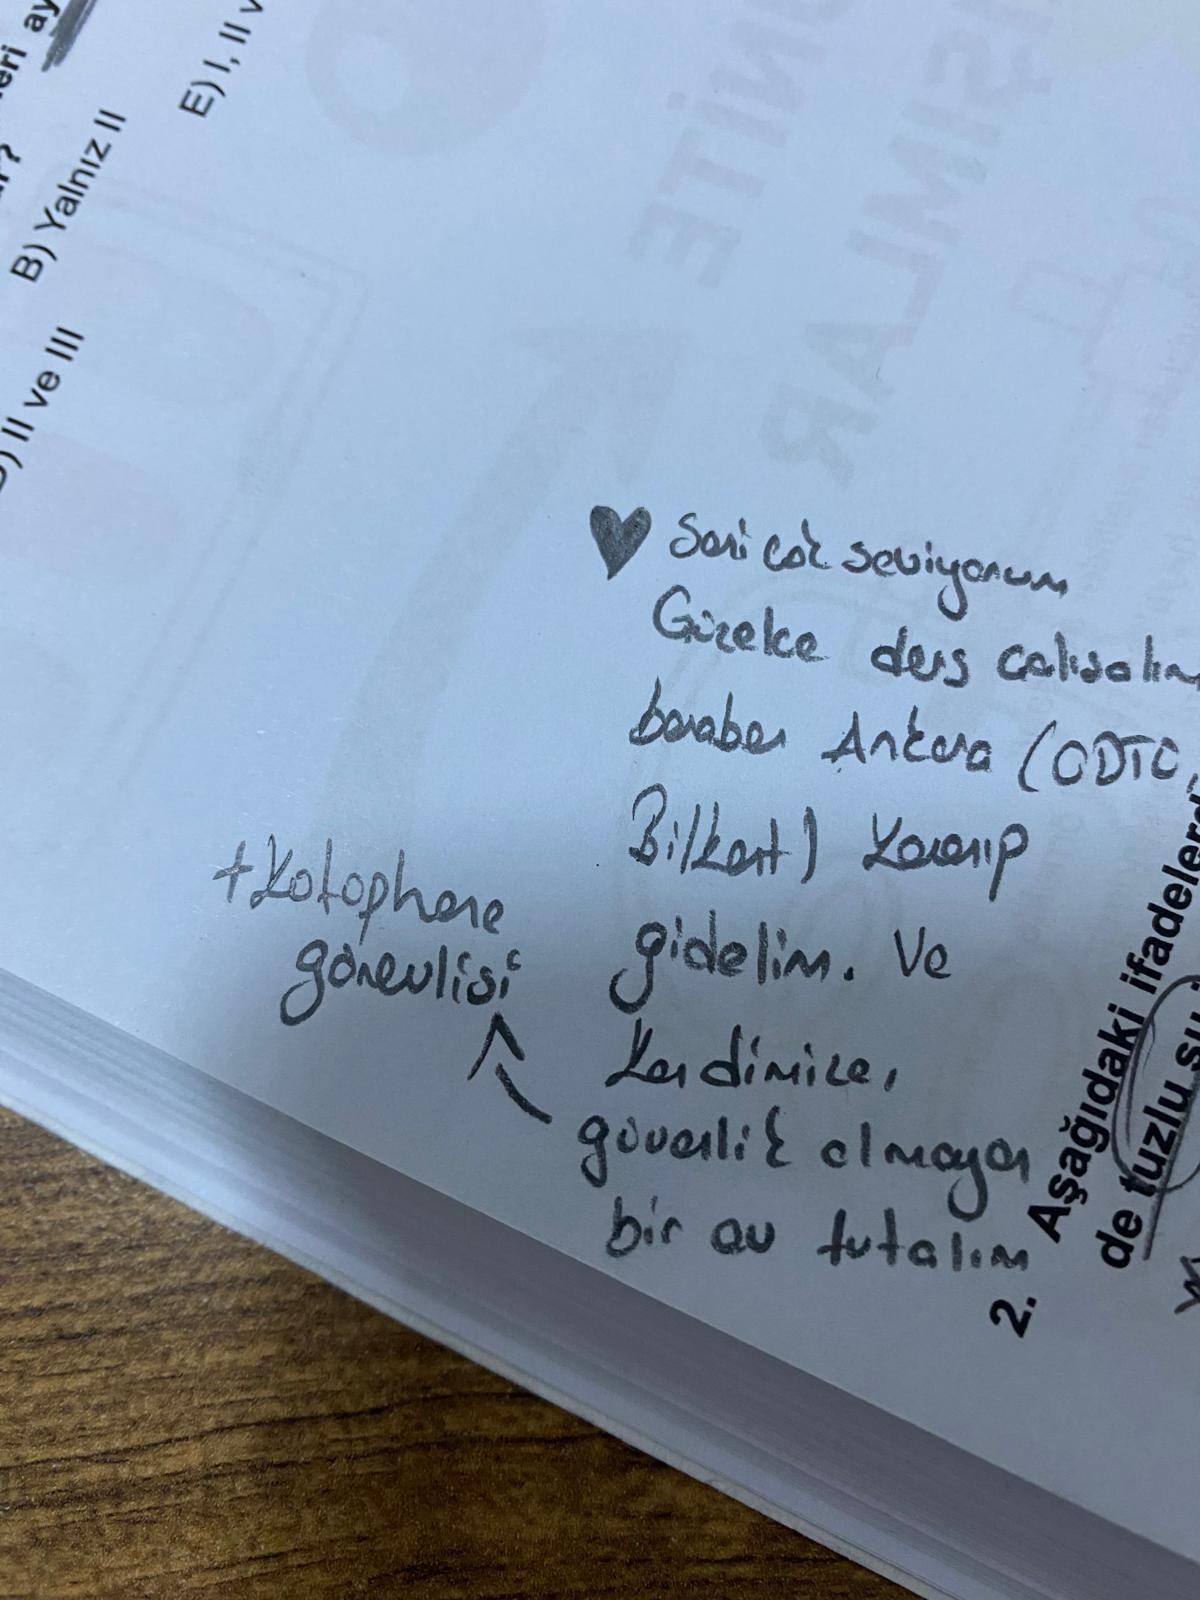 B) Yalnız II
II ve III
E) I, II v
ÜNİTE
♥ Seni çok seviyorum
Güzelce ders calısalım
beraber Ankara (ODTÜ,
Bilkent) kazanıp
gidelim. Ve
kendimize,
güvenlik olmayan
bir ev tutalım
+kütüphane
görevlisi
2. Aşağıdaki ifadelerd
de tuzlu su